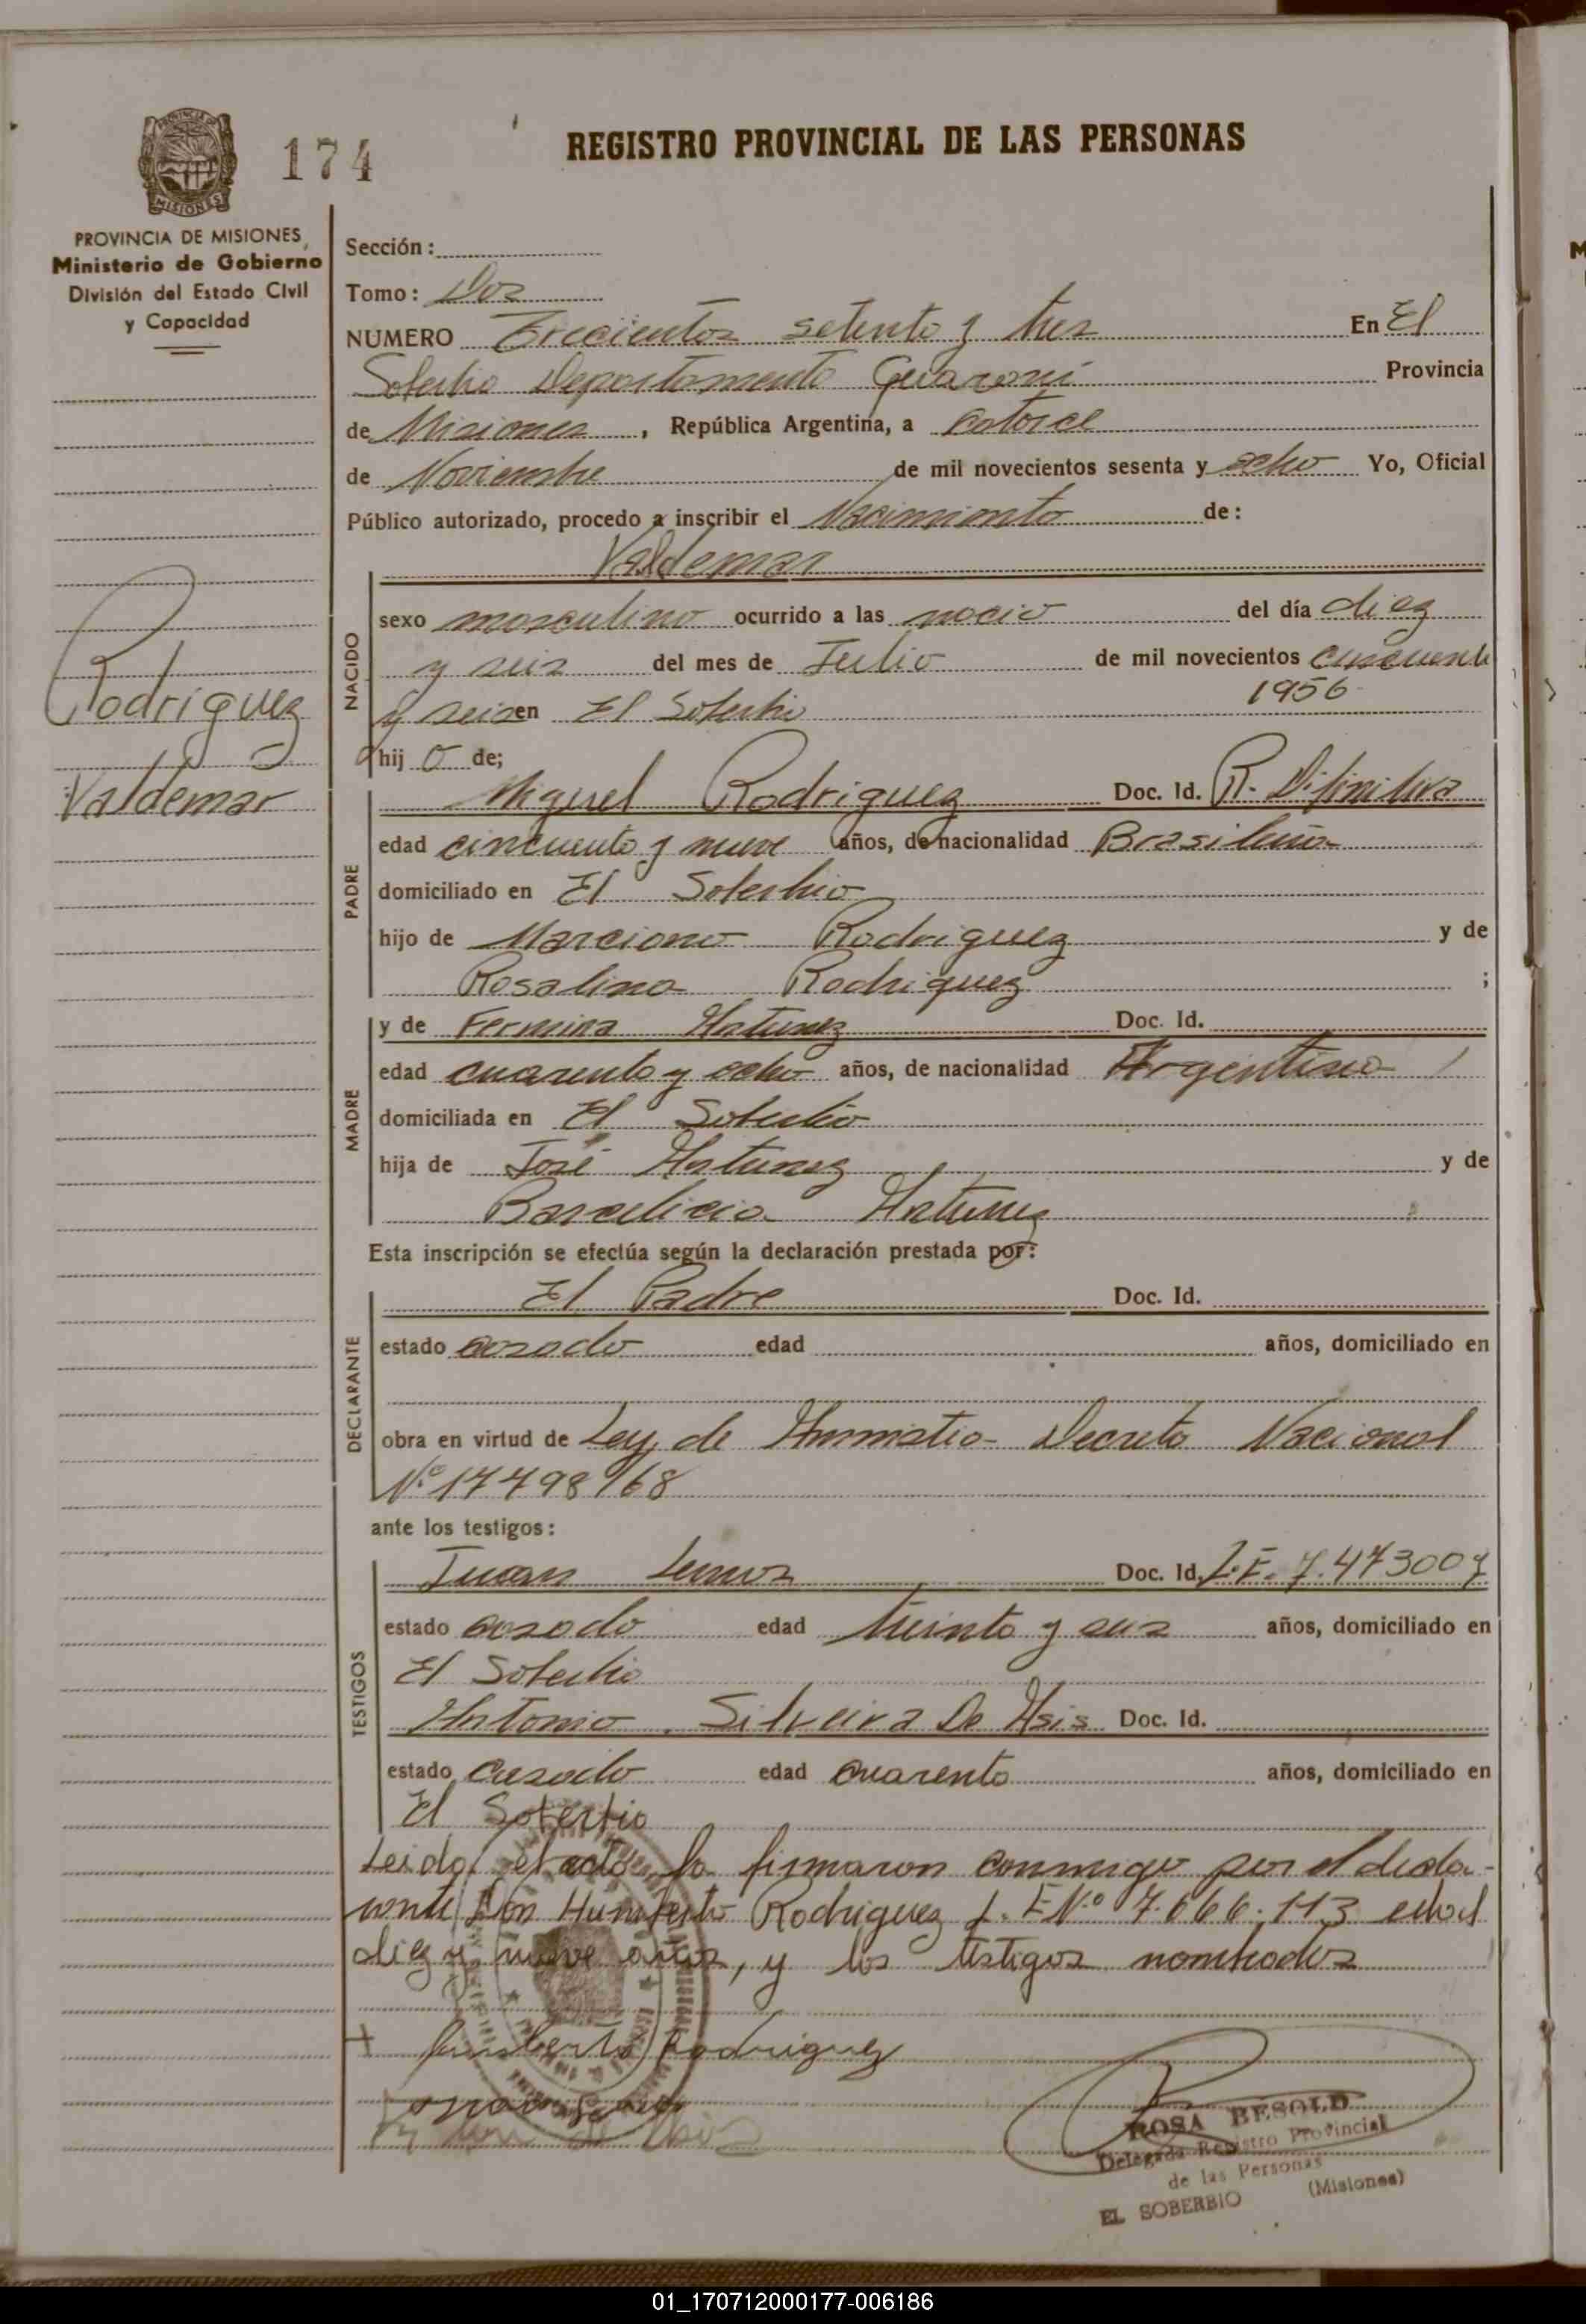 174
REGISTRO PROVINCIAL DE LAS PERSONAS
PROVINCIA DE MISIONES
MISIONES
PROVINCIA DE MISIONES,
Ministerio de Gobierno
División del Estado Civil
y Capacidad
Rodriguez
Valdemar
Sección :
Tomo : Dos
NUMERO Trecientos setenta y tres En El
Soberbio Departamento Guarani Provincia
de Misiones , República Argentina, a catorce
de Noviembre de mil novecientos sesenta y ocho Yo, Oficial
Público autorizado, procedo a inscribir el Nacimiento de :
Valdemar
NACIDO
sexo masculino ocurrido a las nacio del día diez
y seis del mes de Julio de mil novecientos cincuenta
1956
y seis en El Soberbio
hij o de;
PADRE
Miguel Rodriguez Doc. Id. R. Difinitiva
edad cincuenta y nueve años, de nacionalidad Brasileña
domiciliado en El Soberbio
hijo de Marciano Rodriguez y de
Rosalina Rodriguez ;
MADRE
y de Fermina Antunez Doc. Id.
edad cuarenta y ocho años, de nacionalidad Argentina
domiciliada en El Soberbio
hija de José Antunez y de
Antunez
Esta inscripción se efectúa según la declaración prestada por :
DECLARANTE
El Padre Doc. Id.
estado casado edad años, domiciliado en
obra en virtud de Ley de Ammistia Decreto Nacional
Nº 17498/68
ante los testigos :
TESTIGOS
Juan Lemos Doc. Id. L.E. 7.473007
estado casado edad treinta y seis años, domiciliado en
El Soberbio
Antonio Silveira De Asis Doc. Id.
estado casado edad cuarenta años, domiciliado en
El Soberbio
Leida el acta la firmaron conmigo por el decla-
rante Don Humberto Rodriguez L. E Nº 7.666.113 edad
diez y nueve años, y los testigos nombrados
+ Humberto Rodriguez
ROSA BESOLD
Delegada Registro Provincial
de las Personas
EL SOBERBIO (Misiones)
01_170712000177-006186